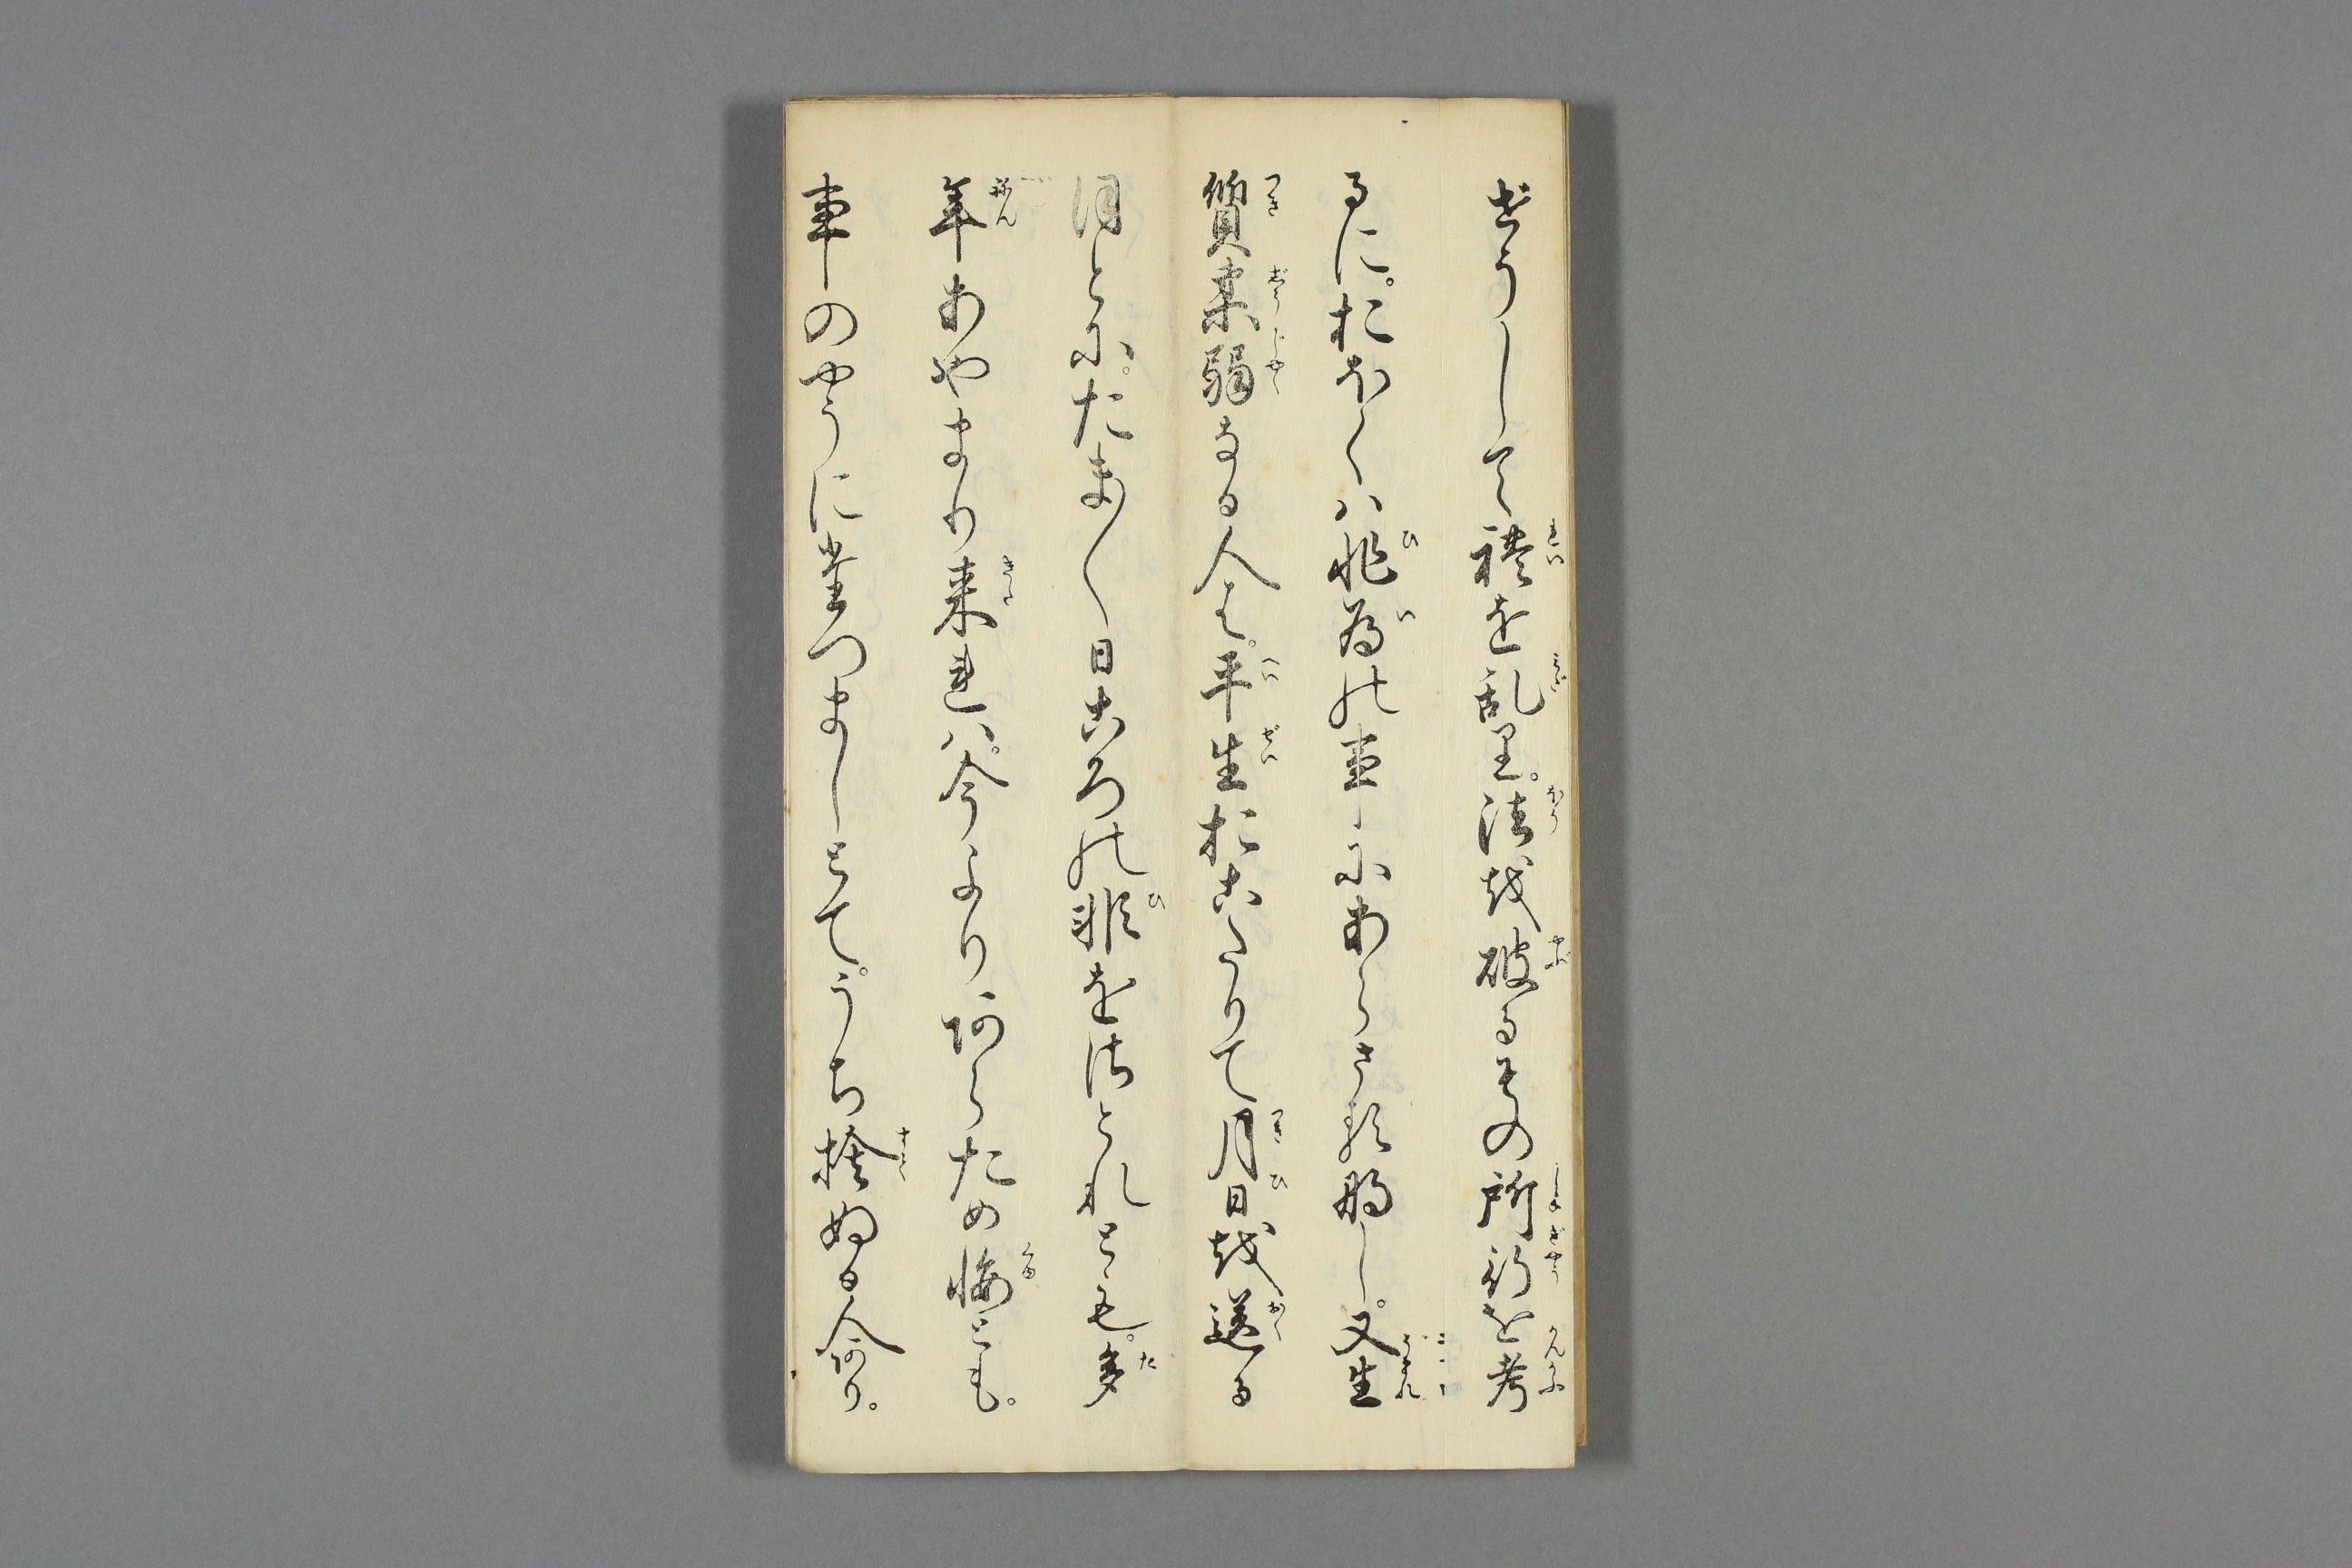 ぜうして禮を乱り。法を破るもの所行を考
るに。おほくハ非為の事にあらさるなし。又生
質柔弱なる人も。平生おこたりて月日を送る
ほとに。たま〳〵日ころの非をさとれとも。多
年あやまり来れハ。今よりあらため悔とも。
事のやうにたつましとて。うち捨ぬる人あり。